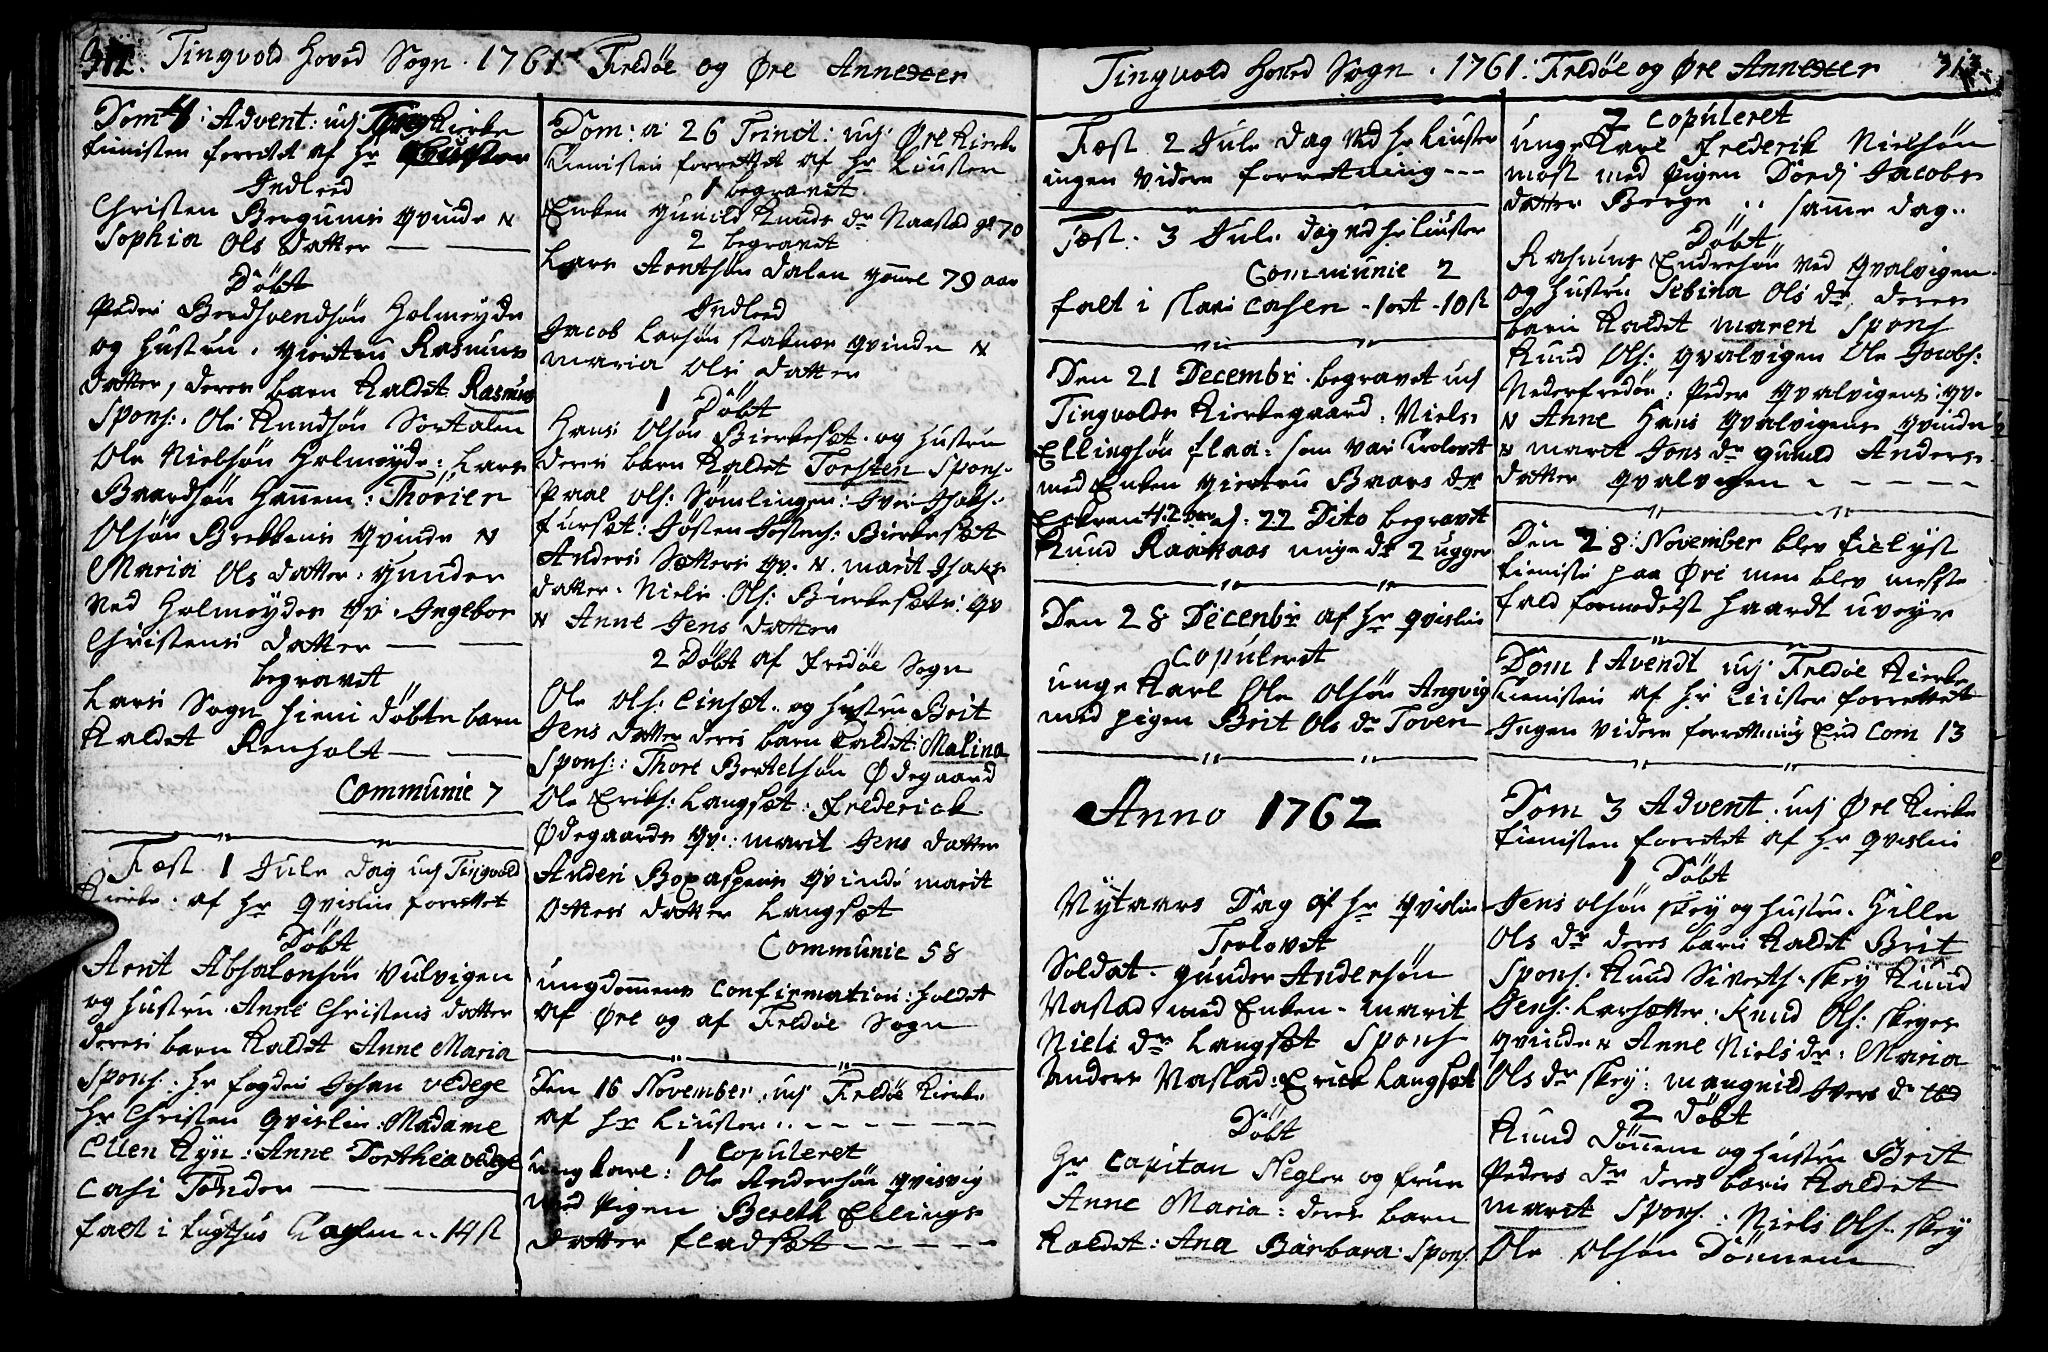 312. Tingvold Hoved Sogn. 1761. Fredøe og Øre Annexer
Dom: 4 Advent: udj Ting Kierke
tienisten forrettet af Hr
Indleed
Christen Bergums Qvinde N
Sophia Ols Datter
Døbt
Peder Berdsvendsøn Holmeyde
og Hustru. Giertru Rasmus
Datter, deres barn kaldet Rasmus
Spons: Ole Knudsøn Sortalen
Ole Nielsøn Holmøyde: Lars
Baardsøn Hannem: Thorer
Olsøn Brekkens Qvinde N
Maria Ols datter: Gunder
Ved Holmøyder Qv. Ingebor
Christens Datter
begravet
Lars Sogn hiem døbte barn
kaldet Renholt
Communic 7
Fæst 1 Jule Dag udj Tingvold
Kierke. af Hr Qvislin forrettet
Døbt
Arnt Absalonsøn Vulvigen
og Hustru. Anne Christens Datter
deres barn kaldet Anne Maria
Spons. Hr fogden Johan vedege
Hr Christen Qvislin. Madame
Ellen Ryn: Anne Dorthea vedege
Casi Tønder
falt i tugthus Casen .. 14 ß
Dom: a 26 Trinit: udj Øre Kierke
Tienisten forrettet af Hr Liuster
1 begravet
Enken Gunild Knuds dr Naastad gl 70
2 begravet
Lars Arntsøn Dalen gamel 79 aar
Indleed
Jacob Larsøn staknes Qvinde N
Maria Ols Datter
1 Døbt
Hans Olsøn Bierkesæt. og Hustru
deres barn kaldet Torsten Spons.
Paal Ols: Sømlingen: Iver Isaks:
fursæt: Josten Jostens: Bierkesæt
Anders Sætters Qv. N. marit Isaks
datter. Niels. Ols: Bierkesæts: Qv
N Anne Jens Datter
2 Døbt af Fredøe Sogn
Ole Ols: Einsæt. og Hustru Brit
Jens Datter deres barn kaldet Malina
Spons: Thore Bertelsøn Ødegaard
Ole Eriks: Langsæt: Frederick
Ødegaards Qv: marit Jens Datter
Anders Boxaspens Qvinde marit
Otters Datter Langsæt
Communic 58
ungdommens Confirmation: holdet
af Øre og af Fredøe Sogn
Den 16 November. udj Fredøe Kierke
af Hr Liuster
1 Copuleret
ung karl: Ole Andersøn Qvisvig
med Pigen Bereth Ellings
Datter fladsæt
Tingvold Hoved Sogn. 1761. Fredøe og Øre Annexer 313.
Fæst 2 Jule Dag Ved Hr Liuster
ingen videre forretning
Fæst. 3 Jule dag ved Hr Liuster
Communic 2
falt i skari Casen - 1 ort - 10 ß
Den 21 Decembr. begravet udj
Tingvolds Kierkegaard. Niels
Ellingsøn flaa: som var Trolovet
med Enken Giertru Baars dr
22 Dito begravet
Knud Raakaas unge dr 2 ugger
Den 28 Decembr af Hr Qvislin
Copuleret
unge karl Ole Olsøn Angvig
med pigen Brit Ols dr Toven
Anno 1762
Nytaars Dag af Hr Qvislin
Trolovet
Soldat. Gunder Andersøn
Vastad med Enken. marit
Niels dr Langsæt Spons
Anders Vastad: Erick Langsæt
Døbt
Hr Capitan Negler og frue
Anne Maria: deres barn
kaldet: Ana Barbara. Spons.
2 Copuleret
unge karl Frederik Nielsøn
møst med Pigen Dordj Jacobs
datter Berge .. samme dag..
Døbt
Rasmus Endresøn Ved Qvalvigen
og Hustru Sebina Ols dr. deres
barn kaldet maren Spons
Knud Ols: Qvalvigen Ole Jacobs:
Nederfredøe: Peder Qvalvigens: Qv.
N Anne Hans Qvalvigens Qvinde
N marit Jons dr gunild Anders
Datter Qvalvigen
Den 28: November blev tielyst
tieniste paa Øre men blev messe
fald formedelst haardt uveyr
Dom 1 Avendt udj Fredøe Kierke
tienisten af Hr Liuster forrettet
Ingen videre forretning End Com 13
Dom 3 Advent. udj Øre Kierke
tienisten forrettet af Hr Qvislin
1 Døbt
Jens Olsøn skey og Hustru. Gille
Ols dr deres barn kaldet Brit
Spons: Knud Siverts. skey Knud
Jens: Larsætter: Knud Ols: skeyes
Qvinde N Anne Niels dr: Maria
Ols dr skey: mangnild Ivers dr ibd
2 Døbt
Knud Dønnem og Hustru Brit
Peders dr deres barn kaldet
marit Spons: Niels Ols. skey
Ole Olsøn Dønnem